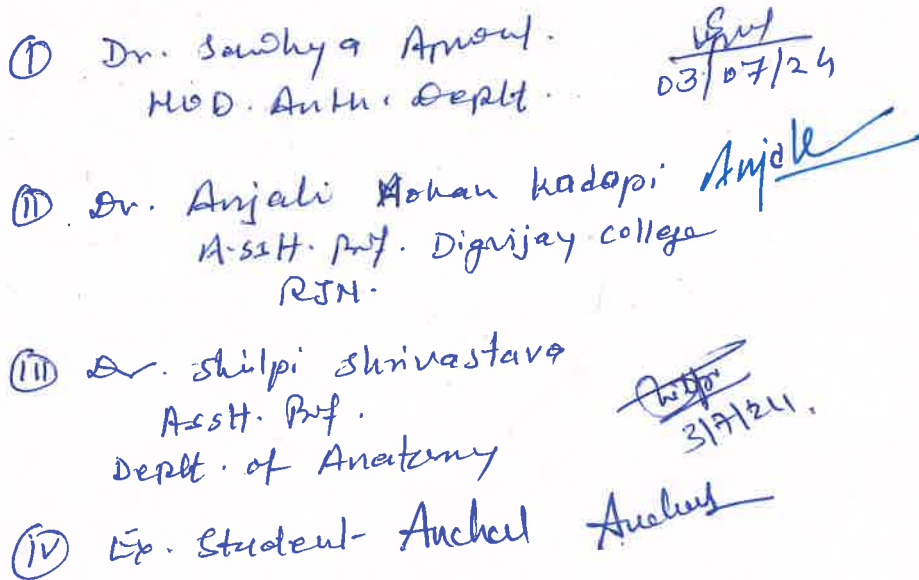 ① Dr. Sandhya
HOD. Anth. Deptt.
03/07/24
② Dr. Anjali Mohan Kadapi Anjali
Asstt. Prof. Digvijay college
RJN.
③ Dr. Shilpi Shrivastava
Asstt. Prof.
Deptt. of Anatomy
3/7/24.
④ Ex. Student- Anchal Anchal